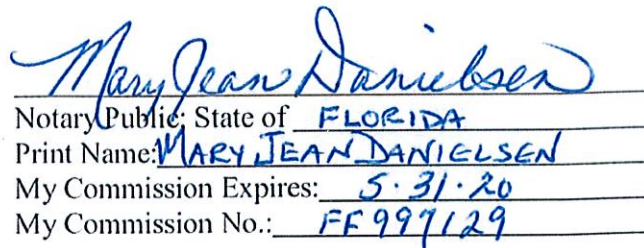 Mary Jean Danielsen
Notary Public; State of FLORIDA
Print Name: MARY JEAN DANIELSEN
My Commission Expires: 5.31.20
My Commission No.: FF997129